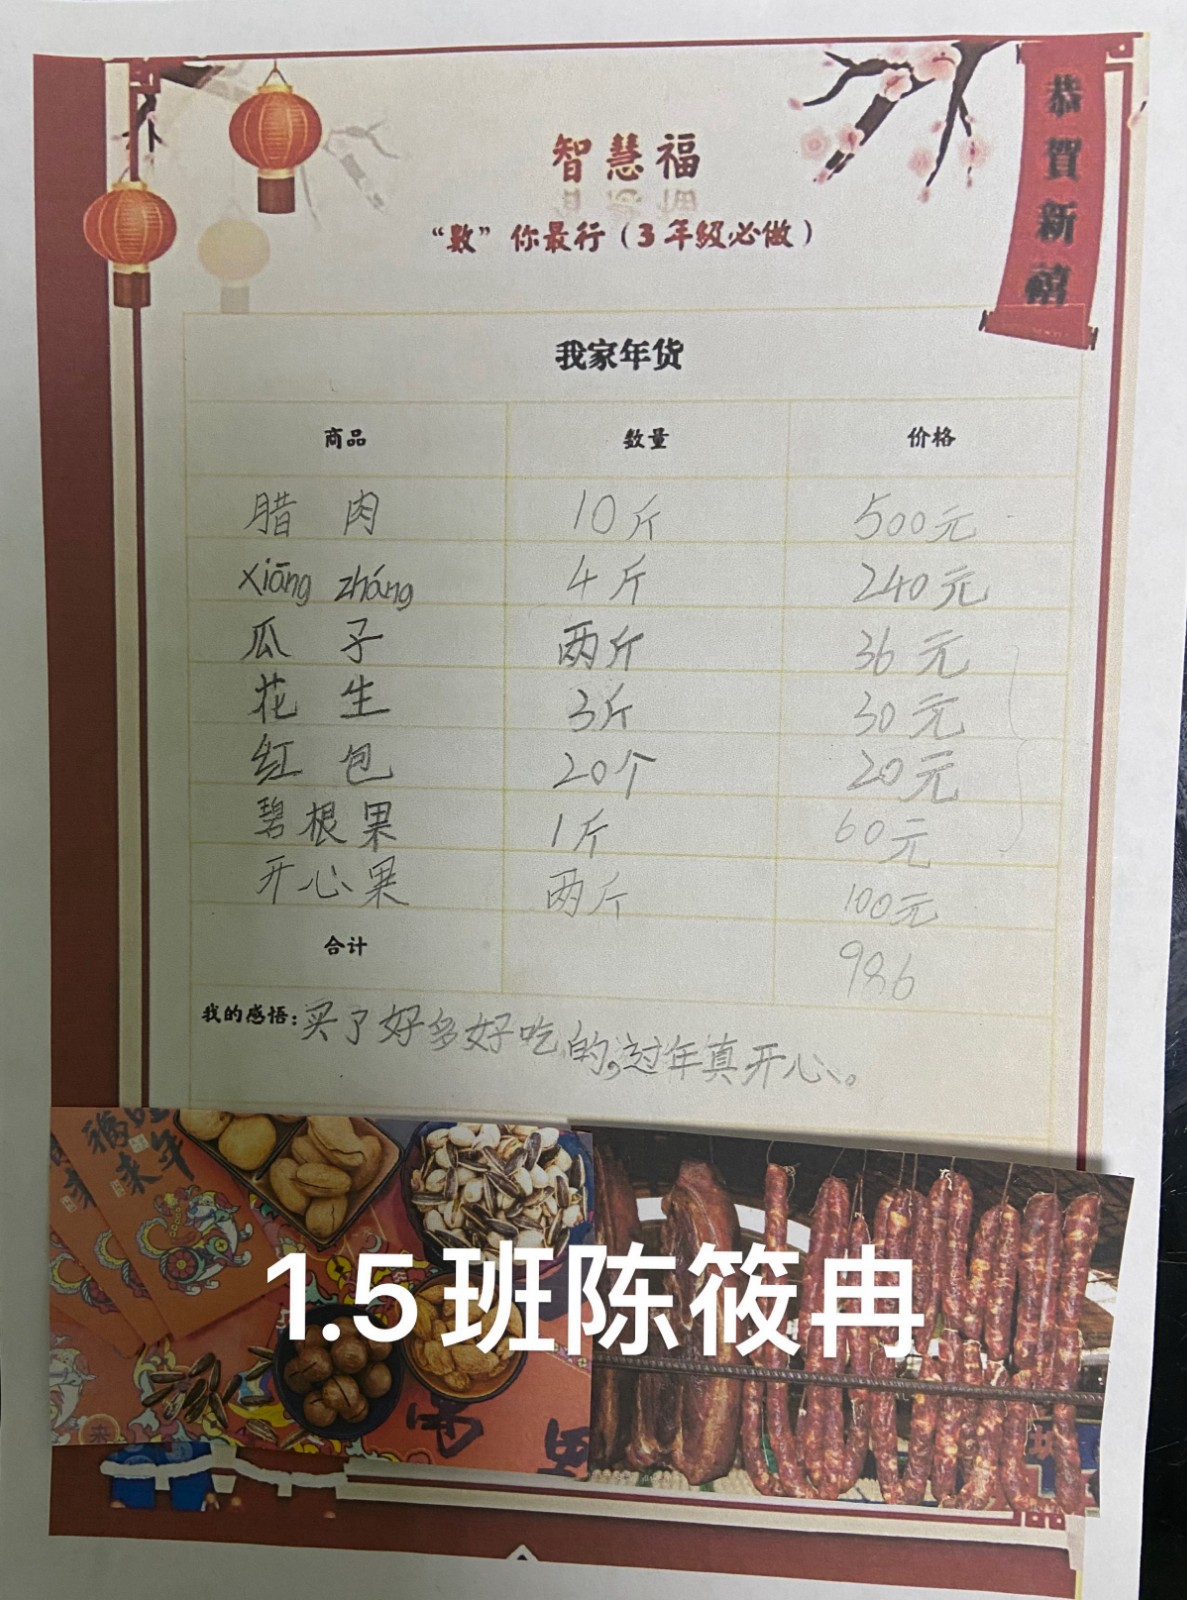 恭賀新禧
智慧福
“数”你最行（3年级必做）
我家年货
商品 数量 价格
腊肉 10斤 500元
xiāng zháng 4斤 240元
瓜子 两斤 36元
花生 3斤 30元
红包 20个 20元
碧根果 1斤 60元
开心果 两斤 100元
合计 986
我的感悟：买了好多好吃的，过年真开心。
福旺
来年
1.5班陈筱冉